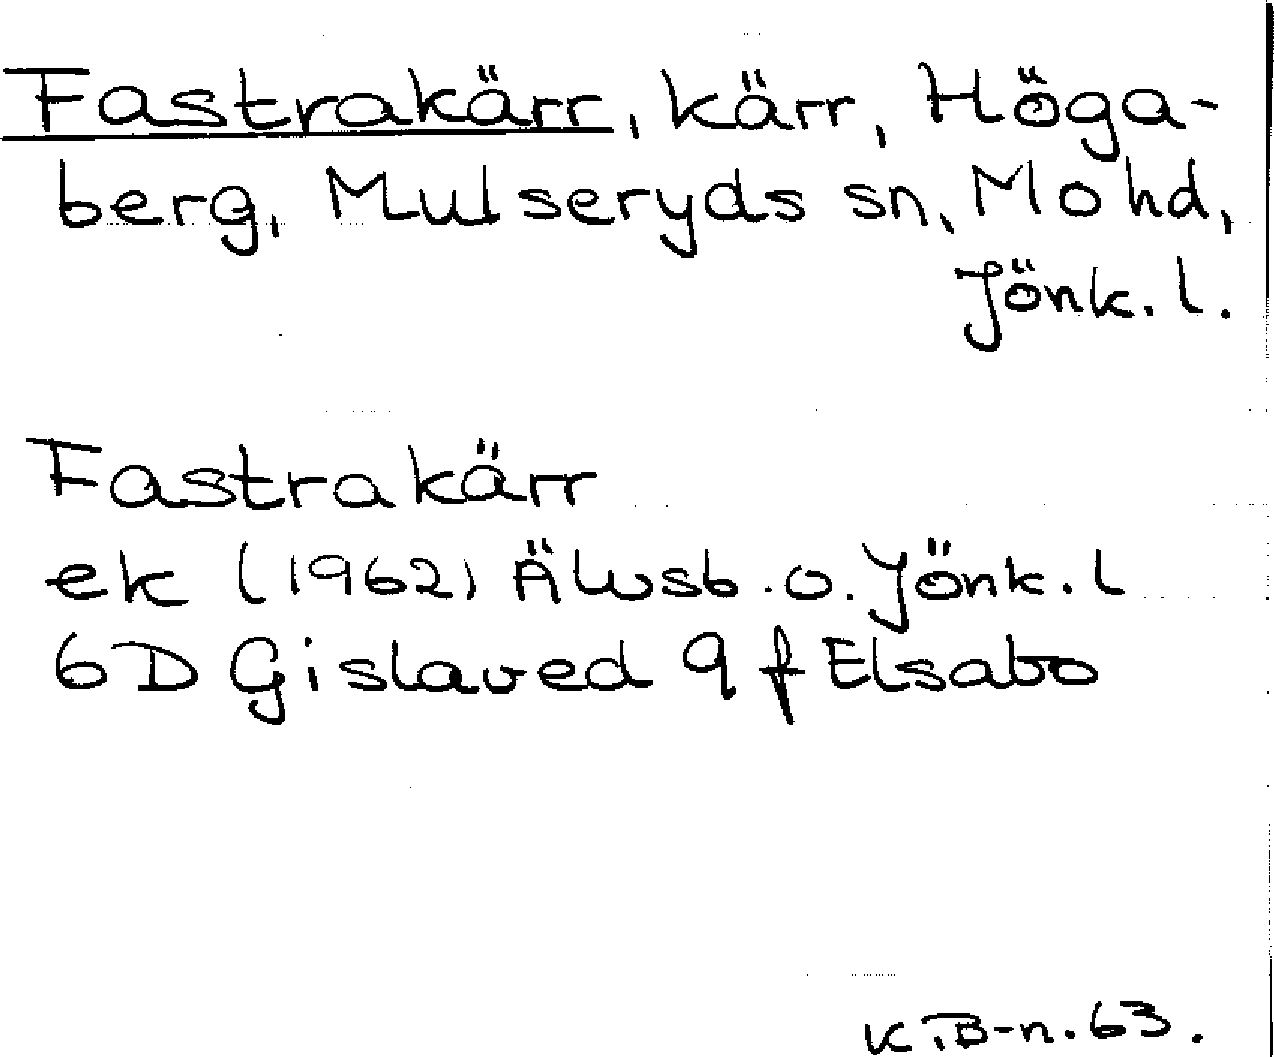 Fastrakärr, kärr, Höga-
berg, Mulseryds sn, Mo hd,
Jönk. l.
Fastrakärr
ek (1962) Älvsb. o. Jönk. l
6D Gislaved 9 f Elsabo
K.B-n. 63.